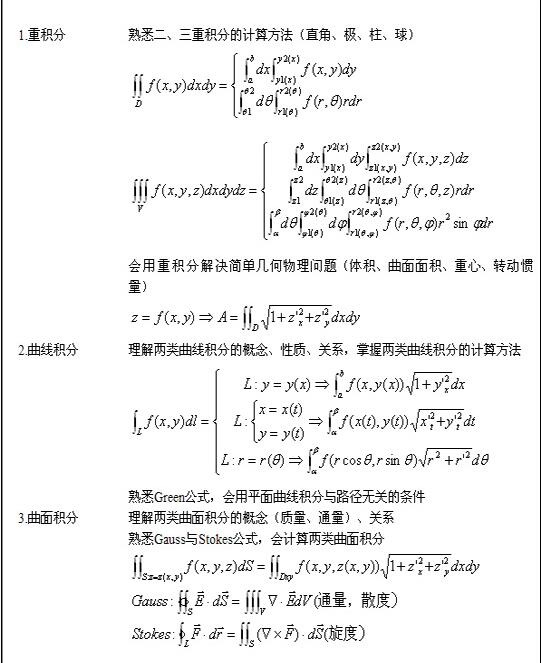 1.重积分 熟悉二、三重积分的计算方法（直角、极、柱、球）
∬_D f(x,y)dxdy = { ∫_a^b dx ∫_{y1(x)}^{y2(x)} f(x,y)dy
∫_{θ1}^{θ2} dθ ∫_{r1(θ)}^{r2(θ)} f(r,θ)rdr
∭_V f(x,y,z)dxdydz = { ∫_a^b dx ∫_{y1(x)}^{y2(x)} dy ∫_{z1(x,y)}^{z2(x,y)} f(x,y,z)dz
∫_{z1}^{z2} dz ∫_{θ1(z)}^{θ2(z)} dθ ∫_{r1(z,θ)}^{r2(z,θ)} f(r,θ,z)rdr
∫_α^β dθ ∫_{φ1(θ)}^{φ2(θ)} dφ ∫_{r1(θ,φ)}^{r2(θ,φ)} f(r,θ,φ)r² sin φdr
会用重积分解决简单几何物理问题（体积、曲面面积、重心、转动惯
量）
z = f(x,y) ⇒ A = ∬_D √(1+z'²_x+z'²_y) dxdy
2.曲线积分 理解两类曲线积分的概念、性质、关系，掌握两类曲线积分的计算方法
∫_L f(x,y)dl = { L: y = y(x) ⇒ ∫_a^b f(x,y(x))√(1+y'²_x) dx
L: { x = x(t) y = y(t) ⇒ ∫_α^β f(x(t),y(t))√(x'²_t+y'²_t) dt
L: r = r(θ) ⇒ ∫_α^β f(r cos θ, r sin θ)√(r²+r'²) dθ
熟悉Green公式，会用平面曲线积分与路径无关的条件
3.曲面积分 理解两类曲面积分的概念（质量、通量）、关系
熟悉Gauss与Stokes公式，会计算两类曲面积分
∬_{S:z=z(x,y)} f(x,y,z)dS = ∬_{Dxy} f(x,y,z(x,y))√(1+z'²_x+z'²_y) dxdy
Gauss: ∯_S E⃗·dS⃗ = ∭_V ∇·E⃗dV(通量，散度)
Stokes: ∮_L F⃗·dr⃗ = ∬_S (∇×F⃗)·dS⃗(旋度)